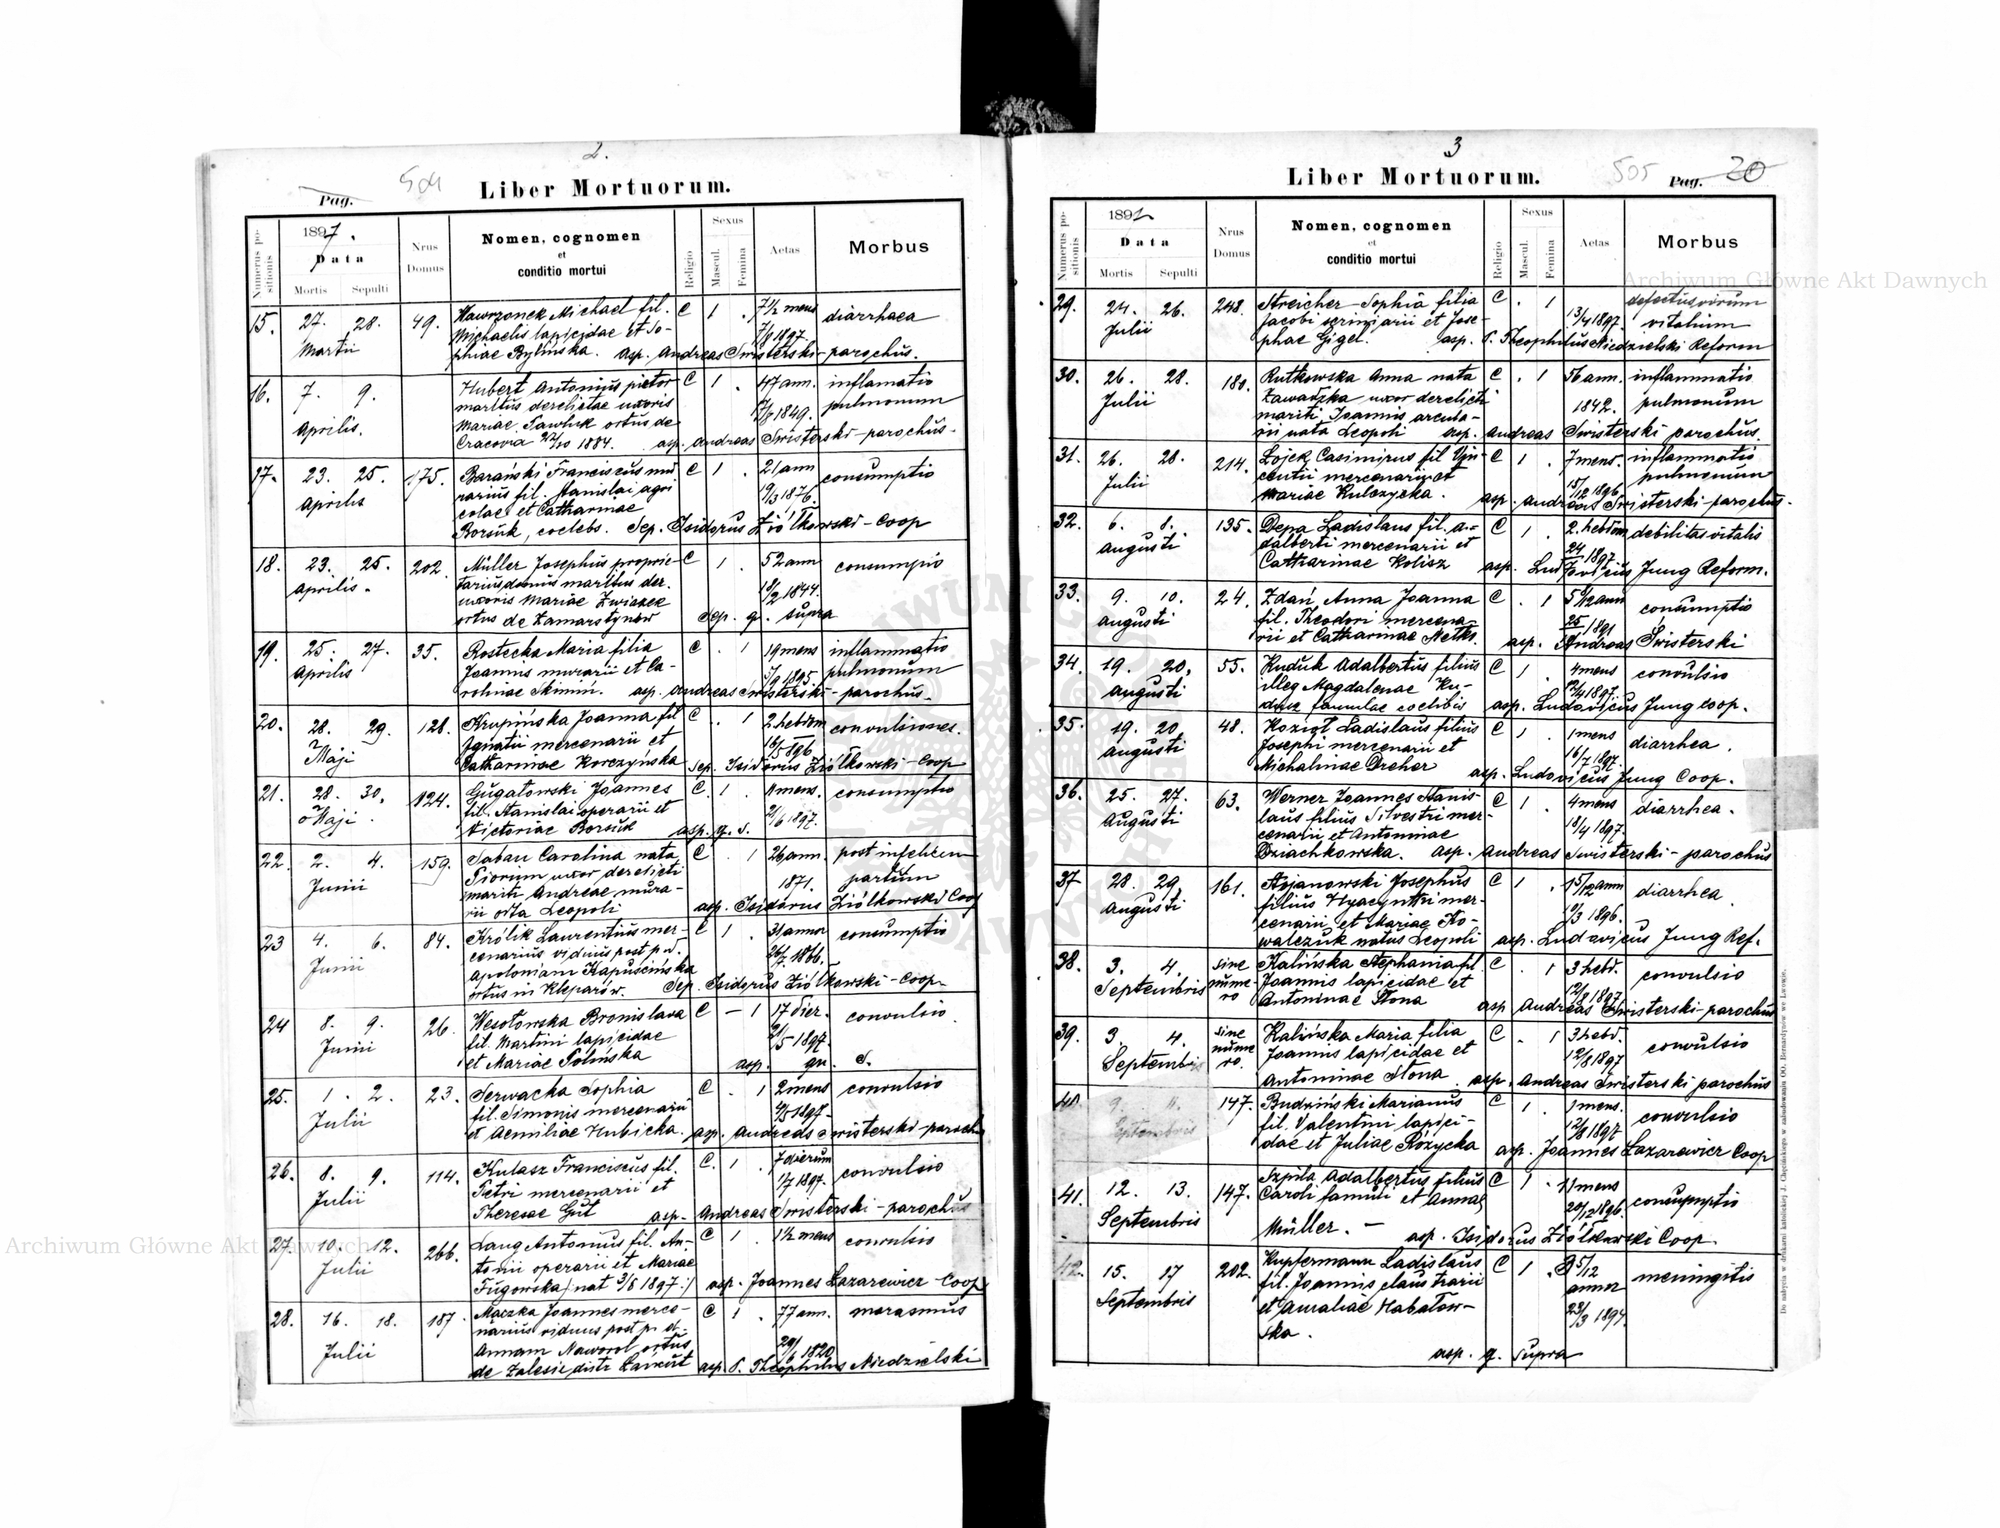 2.
504
Liber Mortuorum.
Pag.
Numerus positionis
1897.
Data
Mortis Sepulti
Nrus Domus
Nomen, cognomen
et
conditio mortui
Religio
Sexus
Mascul.
Femina
Aetas
Morbus
15. 27. 28. 49. Wawrzonek Michael fil. C 1 . 7 1/2 mens diarrhaea
Martii Michaelis lapicidae et So- 1897.
phiae Bylińska. asp. Andreas Świsterski - parochus.
16. 7. 9. Hubert Antonius pictor C 1 . 47 ann. inflamatio
Aprilis. maritus derelictae uxoris 1849. pulmonum
Mariae Pawlik ortus de
Cracovia 1884. asp. Andreas Świsterski - parochus.
17. 23. 25. 175. Barański Franciscus mu C 1 . 21 ann consumptio
Aprilis rarius fil. Stanislai agri 19/3 1876.
colae et Catharinae
Borsuk, coelebs. Sep. Isidorus Ziółkowski - Coop
18. 23. 25. 202. Müller Josephus proprie- C 1 . 52 ann consumpio
Aprilis. tarius domus maritus der. 1844.
uxoris Mariae Zwiazek
ortus de Zamarstynów Sep. q. supra
19. 25. 27. 35. Rostecka Maria filia C . 1 19 mens inflammatio
Aprilis Joannis murarii et Ca- 1895. pulmonum
rolinae asp. Andreas Świsterski - parochus.
20. 28. 29. 128. Krupińska Joanna fil C . 1 2 hebdom convulsiones.
Maji Ignatii mercenarii et
Catharinae Korczyńska Sep. Isidorus Ziółkowski - Coop
21. 28. 30. 124. Gugatowski Joannes C. 1 . mens. consumptio
Maji fil. Stanislai operarii et 1897.
Victoriae Borsuk asp. q. s.
22. 2. 4. 159. Saban Carolina nata C . 1 26 ann. post infelicem
Junii Piorum uxor derelicti 1871. partum
mariti Andreae mura-
rii orta Leopoli asp. Isidorus Ziółkowski Coop
23 4. 6. 84. Królik Laurentius mer- C 1 . 31 annor consumptio
Junii cenarius viduus post p. d. 1866.
Apoloniam Kapuścińska
ortus in Kleparów. Sep. Isidorus Ziółkowski - Coop.
24 8. 9. 26. Wesołowska Bronislava C - 1 17 dier. convulsio
Junii fil. Martini lapicidae 1897.
et Mariae Polińska asp. qu. s.
25. 1. 2. 23. Serwacka Sophia C . 1 2 mens convulsio
Julii fil. Simonis mercenarii 1897.
et Aemiliae Hubicka. asp. Andreas Świsterski - paroch
26. 8. 9. 114. Kulasz Franciscus fil. C. 1 . 7 dierum convulsio
Julii Petri mercenarii et 1/7 1897.
Theresae Gut asp. Andreas Świsterski - parochus
27. 10. 12. 266. Lang Antonius fil. An- C 1 . 1 1/2 mens convulsio
Julii tonii operarii et Mariae
Fugowska /: nat 1897 :/ asp. Joannes Lazarewicz - Coop
28. 16. 18. 187. Mączka Joannes merce- C 1 . 77 ann. marasmus
Julii narius viduus post p. d.
Annam Naworol ortus 1820
de Zalesie distr Łańcut asp. P. Theophilus Niedzielski
3
Liber Mortuorum.
505
Pag. 20
Numerus positionis
1897
Data
Mortis Sepulti
Nrus Domus
Nomen, cognomen
et
conditio mortui
Religio
Sexus
Mascul.
Femina
Aetas
Morbus
29. 24. 26. 248. Streicher Sophia filia C . 1 defectus virium
Julii Jacobi scriniarii et Jose- 13/4 1897. vitalium
phae Gigel. asp. P. Theophilus Niedzielski Reform
30. 26. 28. 180. Rutkowska Anna nata C . 1 56 ann. inflammatio
Julii Zawadzka uxor derelicti 1842. pulmonum
mariti Joannis arcula-
rii nata Leopoli asp. Andreas Świsterski parochus.
31. 26. 28. 214. Łojek Casimirus fil Vin- C 1 . 7 mens. inflammatio
Julii centii mercenarii et 15/12 1896 pulmonum
Mariae Kulczycka. asp. Andreas Świsterski - parochus.
32. 6. 8. 135. Depa Ladislaus fil. A- C 1 . 2. hebdom debilitas vitalis
Augusti dalberti mercenarii et 24/7 1897
Catharinae Kolisz asp. Ludovicus Jung Reform.
33. 9. 10. 24. Zdań Anna Joanna C . 1 5 9/12 ann consumptio
Augusti fil. Theodori mercena- 1891
rii et Catharinae Netks. asp. Andreas Świsterski
34. 19. 20. 55. Kuduk Adalbertus filius C 1 . 4 mens convulsio
Augusti illeg Magdalenae Ku- 1897.
duk famulae coelibis asp. Ludovicus Jung Coop.
35. 19. 20 48. Kozioł Ladislaus filius C 1 . 1 mens diarrhea.
Augusti Josephi mercenarii et 16/7 1897.
Michalinae Dreher asp. Ludovicus Jung Coop.
36. 25. 27. 63. Werner Joannes Stanis- C 1 . 4 mens diarrhea.
Augusti laus filius Silvestri mer- 18/4 1897.
cenarii et Antoninae
Dziachkowska. asp. Andreas Świsterski - parochus
37 28. 29. 161. Stojanowski Josephus C 1 . 1 5/12 ann diarrhea.
Augusti filius Hyacynthi mer- 1896.
cenarii et Mariae Ko-
walczuk natus Leopoli asp. Ludovicus Jung Ref.
38. 3. 4. sine Kalińska Stephania fil. C . 1 3 hebd. convulsio
Septembris nume- Joannis lapicidae et 12/8 1897
ro Antoninae Słona asp Andreas Świsterski - parochus
39. 3. 4. sine Kalińska Maria filia C . 1 3 hebd. convulsio
Septembris nume Joannis lapicidae et 12/8 1897
ro. Antoninae Słona. asp. Andreas Świsterski parochus
40 9. 11. 147. Budziński Marianus C 1 . 1 mens. convulsio
Septembris fil. Valentini lapici- 12/8 1897
dae et Juliae Różycka asp. Joannes Lazarewicz Coop
41. 12. 13. 147. Szpila Adalbertus filius C 1 . mens consumptio
Septembris Caroli famuli et Annae 20/12 1896.
Müller. - asp. Isidorus Ziółkowski Coop.
42. 15. 17 202. Kupfermann Ladislaus C 1 . 5/12 meningitis
Septembris fil. Joannis claustrarii annor
et Aureliae Habatow- 23/3 1894.
ska.
asp. q. supra
Do nabycia w drukarni katolickiej J. Chęcińskiego w zabudowaniu OO. Bernardynów we Lwowie.
Archiwum Główne Akt Dawnych
Archiwum Główne Akt Dawnych
ARCHIWUM GŁÓWNE AKT DAWNYCH